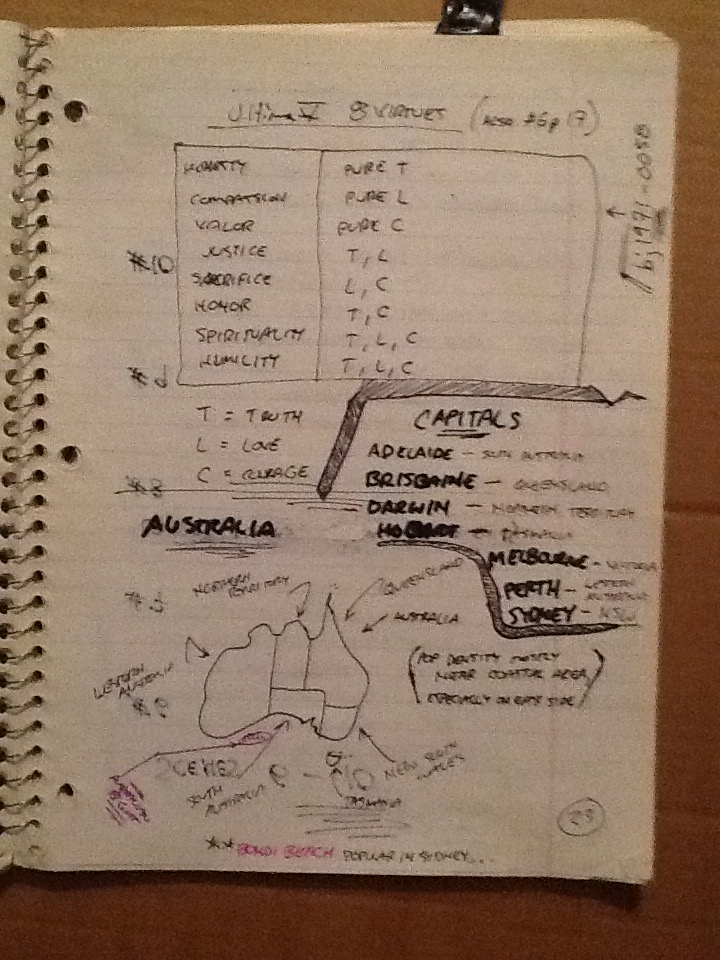 Ultima V 8 VIRTUES (ALSO #6 p 17)
bj1971-0058
HONESTY PURE T
COMPASSION PURE L
VALOR PURE C
#10
JUSTICE T, L
SACRIFICE L, C
HONOR T, C
SPIRITUALITY T, L, C
HUMILITY T, L, C
T = TRUTH
L = LOVE
C = COURAGE
CAPITALS
ADELAIDE - SOUTH AUSTRALIA
BRISBAINE - QUEENSLAND
DARWIN - NORTHERN TERRITORY
HOBART - TASMANIA
MELBOURNE - VICTORIA
PERTH - WESTERN AUSTRALIA
SYDNEY - NSW
AUSTRALIA
NORTHERN TERRITORY
QUEENSLAND
AUSTRALIA
WESTERN AUSTRALIA
(POP DENSITY MOSTLY
NEAR COASTAL AREA,
ESPECIALLY ON EAST SIDE)
SOUTH AUSTRALIA
NEW SOUTH WALES
TASMANIA
23
** BONDI BEACH POPULAR IN SYDNEY...